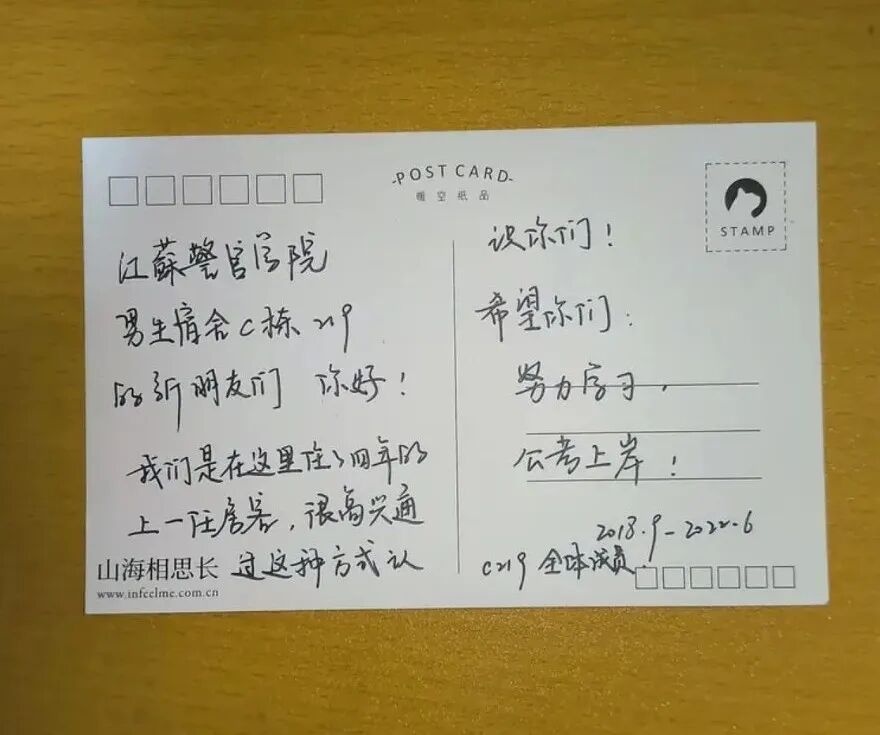 POST CARD
暖空纸品
STAMP
江蘇警官学院
男生宿舍C栋219
的新朋友们 你好!
我们是在这里住了四年的
上一任房客,很高兴通
过这种方式认
山海相思长
www.infeelme.com.cn
识你们!
希望你们:
努力学习,
公考上岸!
2018.9-2022.6
C219 全体成员